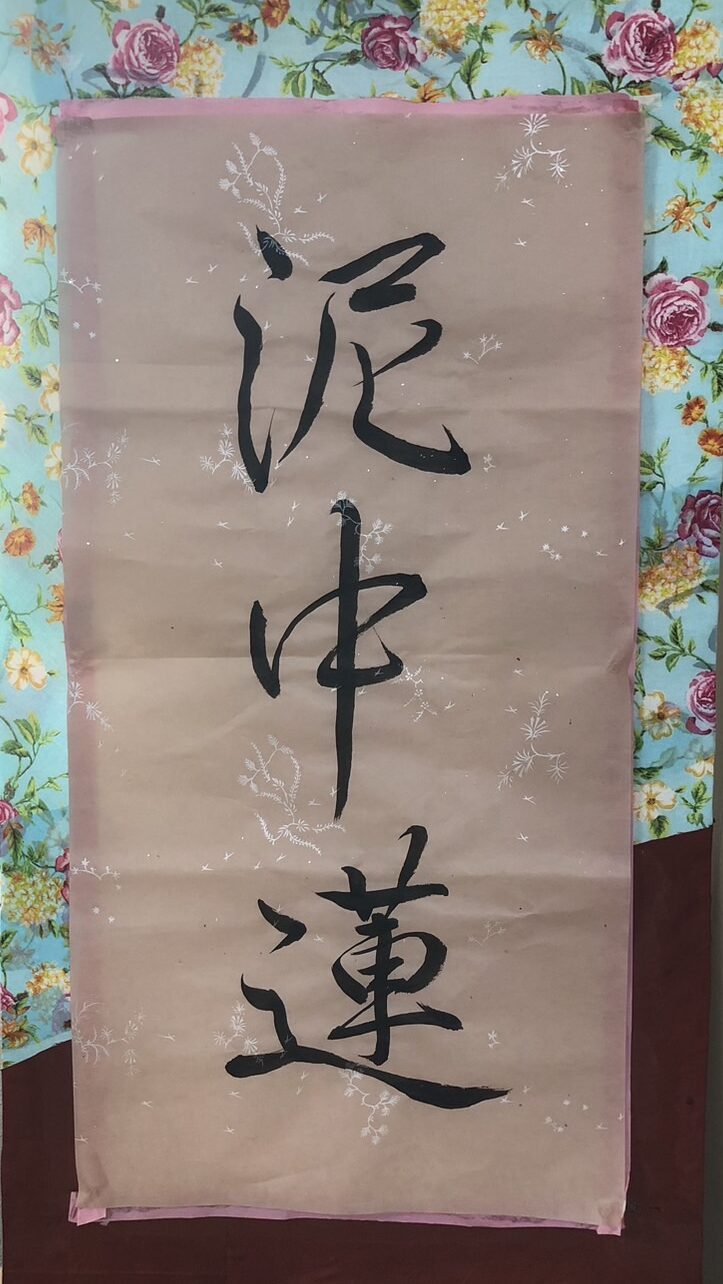 泥中蓮